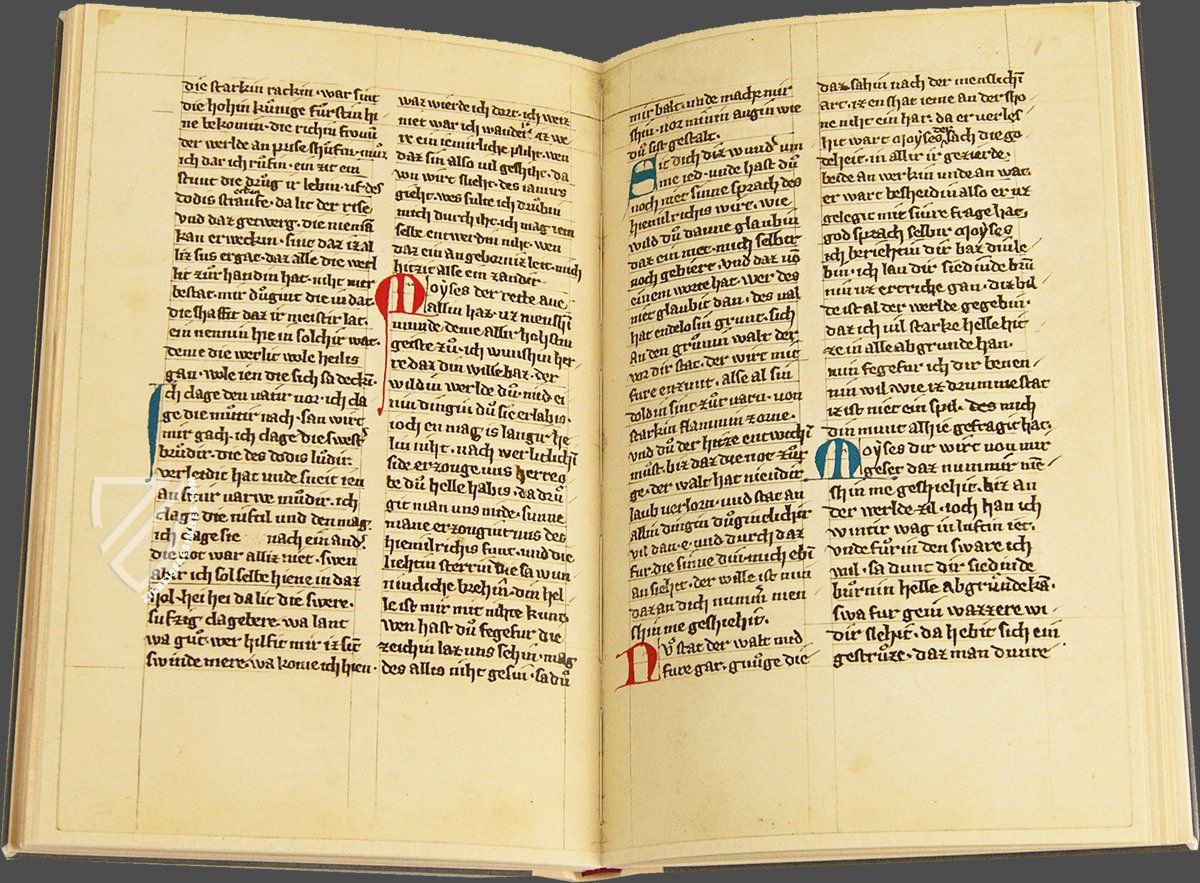 die starkin rackin · war sint
die hohin kunige furstin hi
ne bekomin · die richin frouw̄
der werlde an prise
ich dar ich rufin · ein zit ein
stunt die ir lebin · uf des
todis straufe · da lit der rise
vnd daz getwerg · die mensch̄
kan erweckin · sint daz iz al
liz sus ergat · daz alle die werl
lit zur handin hat · niht mer
bestat · mir die in dat
die shaffit daz ir meistir lat ·
ein nennin hie in solchir wat ·
deme die werlit wole heilis
gan · wole ien die sich sa deckin ·
Ich clage den vatir vor · ich cla
ge die mutir nach · san wirt
mir gach · ich clage die swest̄
brudir · die des dodis ludir ·
verleidit hat unde sucit ien
an stiur varwe mudir · ich
clage die niftil und den mag ·
ich clage sie nach ein and̄ ·
die not war alliz niet · swen
abir ich sol selbe hiene in daz
hol · hei hei da lit die swere ·
sufzig clagebere · wa lant
wa gut · wer hilfit mir iz sint
swinde mere · wa kome ich hien ·
waz wierde ich dort · ich weiz
niet war ich wander · iz we
re ein iemirliche pliht · wen
daz sin also vil geshiht · da
wu wirt slieht · des iamirs
gieht · wes sulte ich drumbin
mich durch iht · ich mag iem
selbe entwerdin niht · wen
daz ein angeborniz lett · mich
hitzit alse ein zander ·
Moyses der rette ane
allin haz · uz menshin
munde deme allir hohstin
geiste zu · ich wunshin her
re daz din wille haz · der
wildin werlde du · mid ei
nin dingin du sie erlabis ·
ioch en mag is langir he
lin niht · nach werlichin
side erzouge uns herreo
be du helle habis · da dru
git man uns mide · sunne
mane erzougint uns des
hiemilrichis funt · und die
liehtin sterrin die sa wun
nicliche brehin · din hel
le ist mir mit nihte kunt ·
wen hast du fegefur die
zeich in laz uns sehin · mag
des allis niht gesin · sa du
mir balt · unde mache mir
shin · vor minin augin wie
du sist gestalt ·
Sit dich diz wundir um
me ied · unde hast du
noch niet sinne sprach des
hiemilrichis wirt · wie
wild du danne glaubin
daz ein niet · mich selbir
noch gebiere · vnd daz uō
einem worte hat · wer des
niet glaubit dan · des val
hat endelosin grunt · sich
an den grunin walt der
vor dir stat · der wirt mit
fure enzunt · alse al sin
toldin sint zur varn · von
starkin flammin zorne ·
vnd du der hitze entwichī
must · biz daz die not zur
ge · der walt hat niendir
laub verlorn · und stat an
allin dingin dugintlichir
vil dan · e · und durch daz
fur · die sinne din · mich ebī
an siehit · der wille ist min
daz an dich nummir men
shin me geshiehit ·
Nu stat der walt mid
fure gar · gnuge die
daz sahin nach der menslichī
art · iz en shat ieme an der sho
ne niht ein har · da er verles
hit wart Moyses der sach die go
teheit · in allir ir gezierde ·
beide an werkin unde an wat ·
er wart besheidin also er uz
gelegit mit sinre frage hat ·
god sprach selbir Moyses
ich beriehtin dir baz din le
bin · ich lan dir sied inde brū
nin uz ertriche gan · diz bil
de ist al der werlde gegebin ·
daz ich vil starke helle hit
ze in alle abgrunde han ·
ain fegefur ich dir benen
nin wil · wie iz drumme stat
iz ist niet ein spil · des mich
din munt allhie gefragit hat ·
Moyses dir wirt vou mir
geset daz nummir mē
shin me geshiehit · biz an
der werlde zil · ioch han ich
wintir wag in luftin iet ·
vnde fur in den sware ich
wil · sa dunt dir sied inde
burnin helle abgrunde kā ·
swa fur gein wazzere wi ·
dir slehit · da hebit sich ein
gestruze · daz man dunre